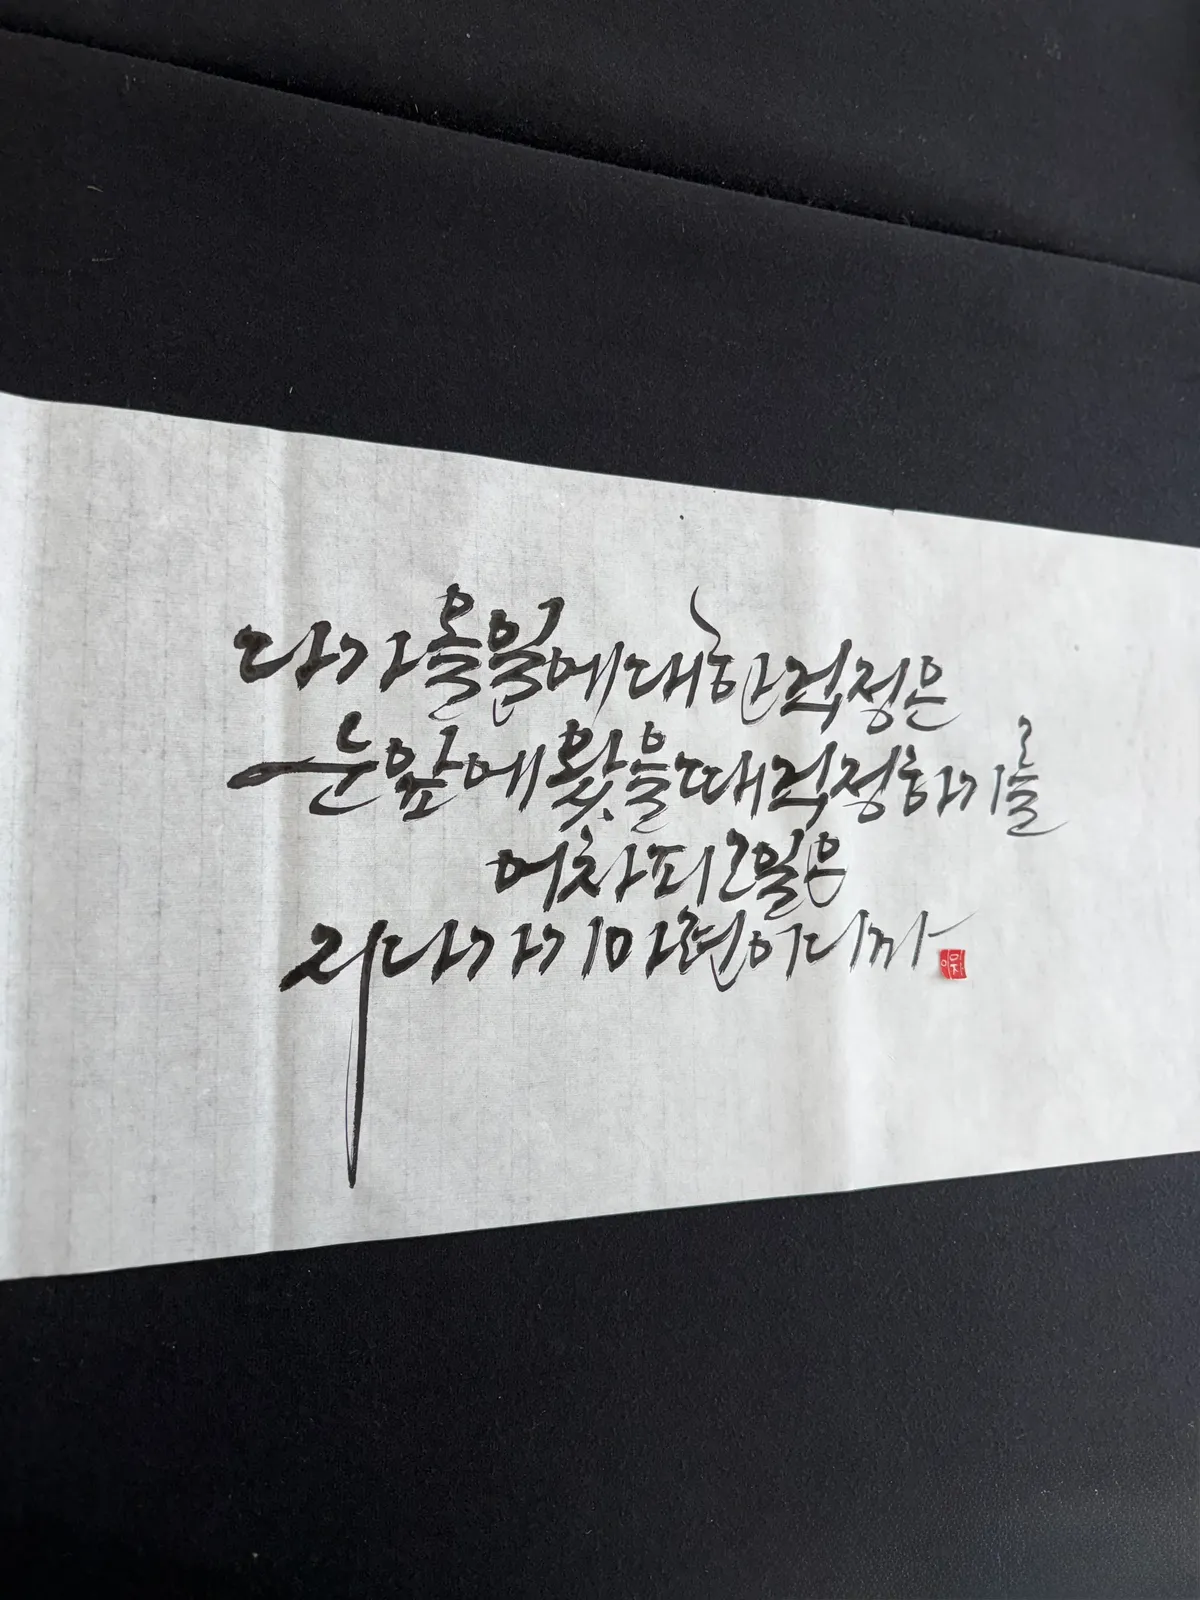 다가올 일에 대한 걱정은
눈앞에 왔을 때 걱정하기를
어차피 그 일은
지나가기 마련이니까